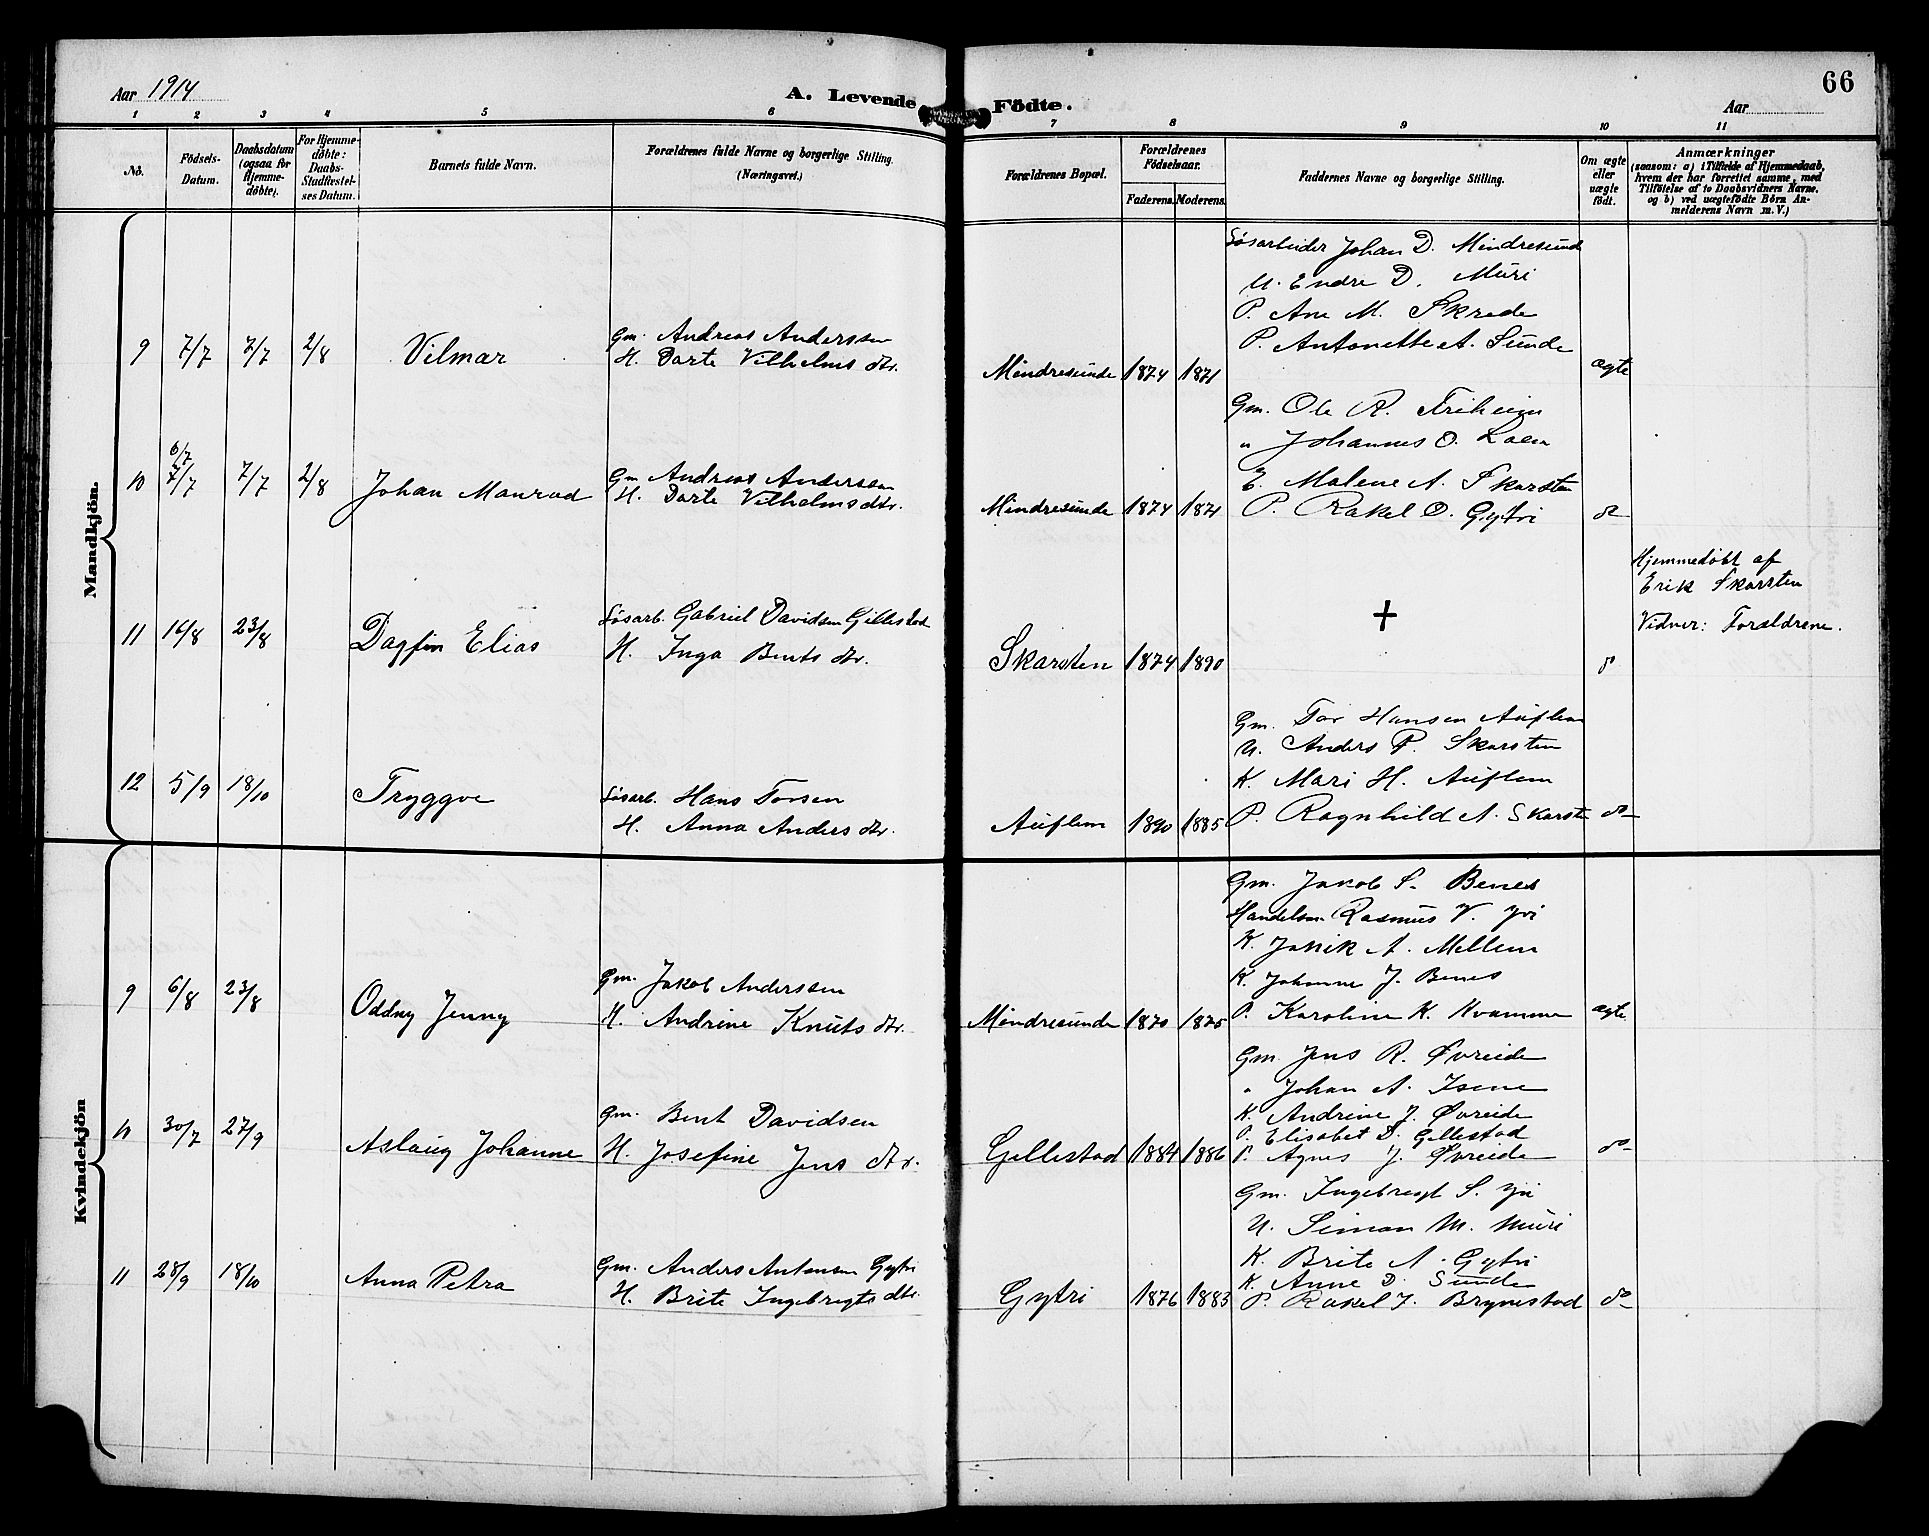 Aar 1914
A. Levende Födte.
Aar
66
1 2 3 4 5 6 7 8 9 10 11
No.
Födsels-
Datum.
Daabsdatum
(ogsaa for
Hjemme-
döbte).
For Hjemme-
döbte:
Daabs-
Stadfæstel-
ses Datum.
Barnets fulde Navn.
Forældrenes fulde Navne og borgerlige Stilling.
(Næringsvei.)
Forældrenes Bopæl.
Forældrenes
Födselsaar.
Faderens. Moderens.
Faddernes Navne og borgerlige Stilling.
Om ægte
eller
uægte
födt.
Anmærkninger
(saasom: a) i Tilfælde af Hjemmedaab,
hvem der har forrettet samme, med
Tilföielse af to Daabsvidners Navne.
og b) ved uægtefödte Börn An-
melderens Navn m. V.)
Mandkjön.
9 7/7 7/7 2/8 Vilmar
Gm. Andreas Anderssen
H. Dorte Vilhelms dtr.
Mindresunde 1874 1871
Løsarbeider Johan D. Mindresund
U. Endre D. Muri
P. Ane M. Skrede
P. Antonette A. Sunde
ægte
10 6/7 7/7 7/7 2/8 Johan Monrad
Gm Andreas Andersen
H. Dorte Vilhelmsdtr.
Mindresunde 1874 1871
Gm. Ole R. Friheim
" Johannes O. Loen
E. Malene A. Skarsten
P. Rakel D. Gytri
do
11 16/8 23/8 Dagfin Elias
Løsarb. Gabriel Davidsen Gillestad
H. Inga Bents dtr.
Skarsten 1874 1890
+
Hjemmedøbt af
Erik Skarsten
Vidner: Forældrene.
12 5/9 18/10 Tryggve
Løsarb. Hans Torsen
H. Anna Anders dtr.
Auflem 1890 1885
Gm. Tor Hansen Auflem
U. Anders P. Skarsten
K. Mari H. Auflem
P. Ragnhild A. Skarste
do
Kvindekjön
9 6/8 23/8 Oddny Jenny
Gm. Jakob Anderssen
H. Andrine Knuts dtr.
Mindresunde 1870 1875
Gm. Jakob S. Benes
Handelsm. Rasmus V. Yri
K. A. Mellem
K. Johanne J. Benes
P. Karoline K. Kvamme
ægte
10 30/7 27/9 Aslaug Johanne
Gm. Bent Davidsen
H. Josefine Jens dtr.
Gillestad 1884 1886
Gm Jens R. Øvreide
" Johan A. Isene
K. Andrine J. Øvreide
P. Elisabet D. Gillestad
P. Agnes J. Øvreide
do
11 28/9 18/10 Anna Petra
Gm. Anders Antonsen Gytri
H. Brite Ingebrigts dtr.
Gytri 1876 1883
Gm. Ingebregt S. Yri
U. Simon M. Muri
K. Brite A. Gytri
K. Anne D. Sunde
P. Rakel J. Brynestad
do